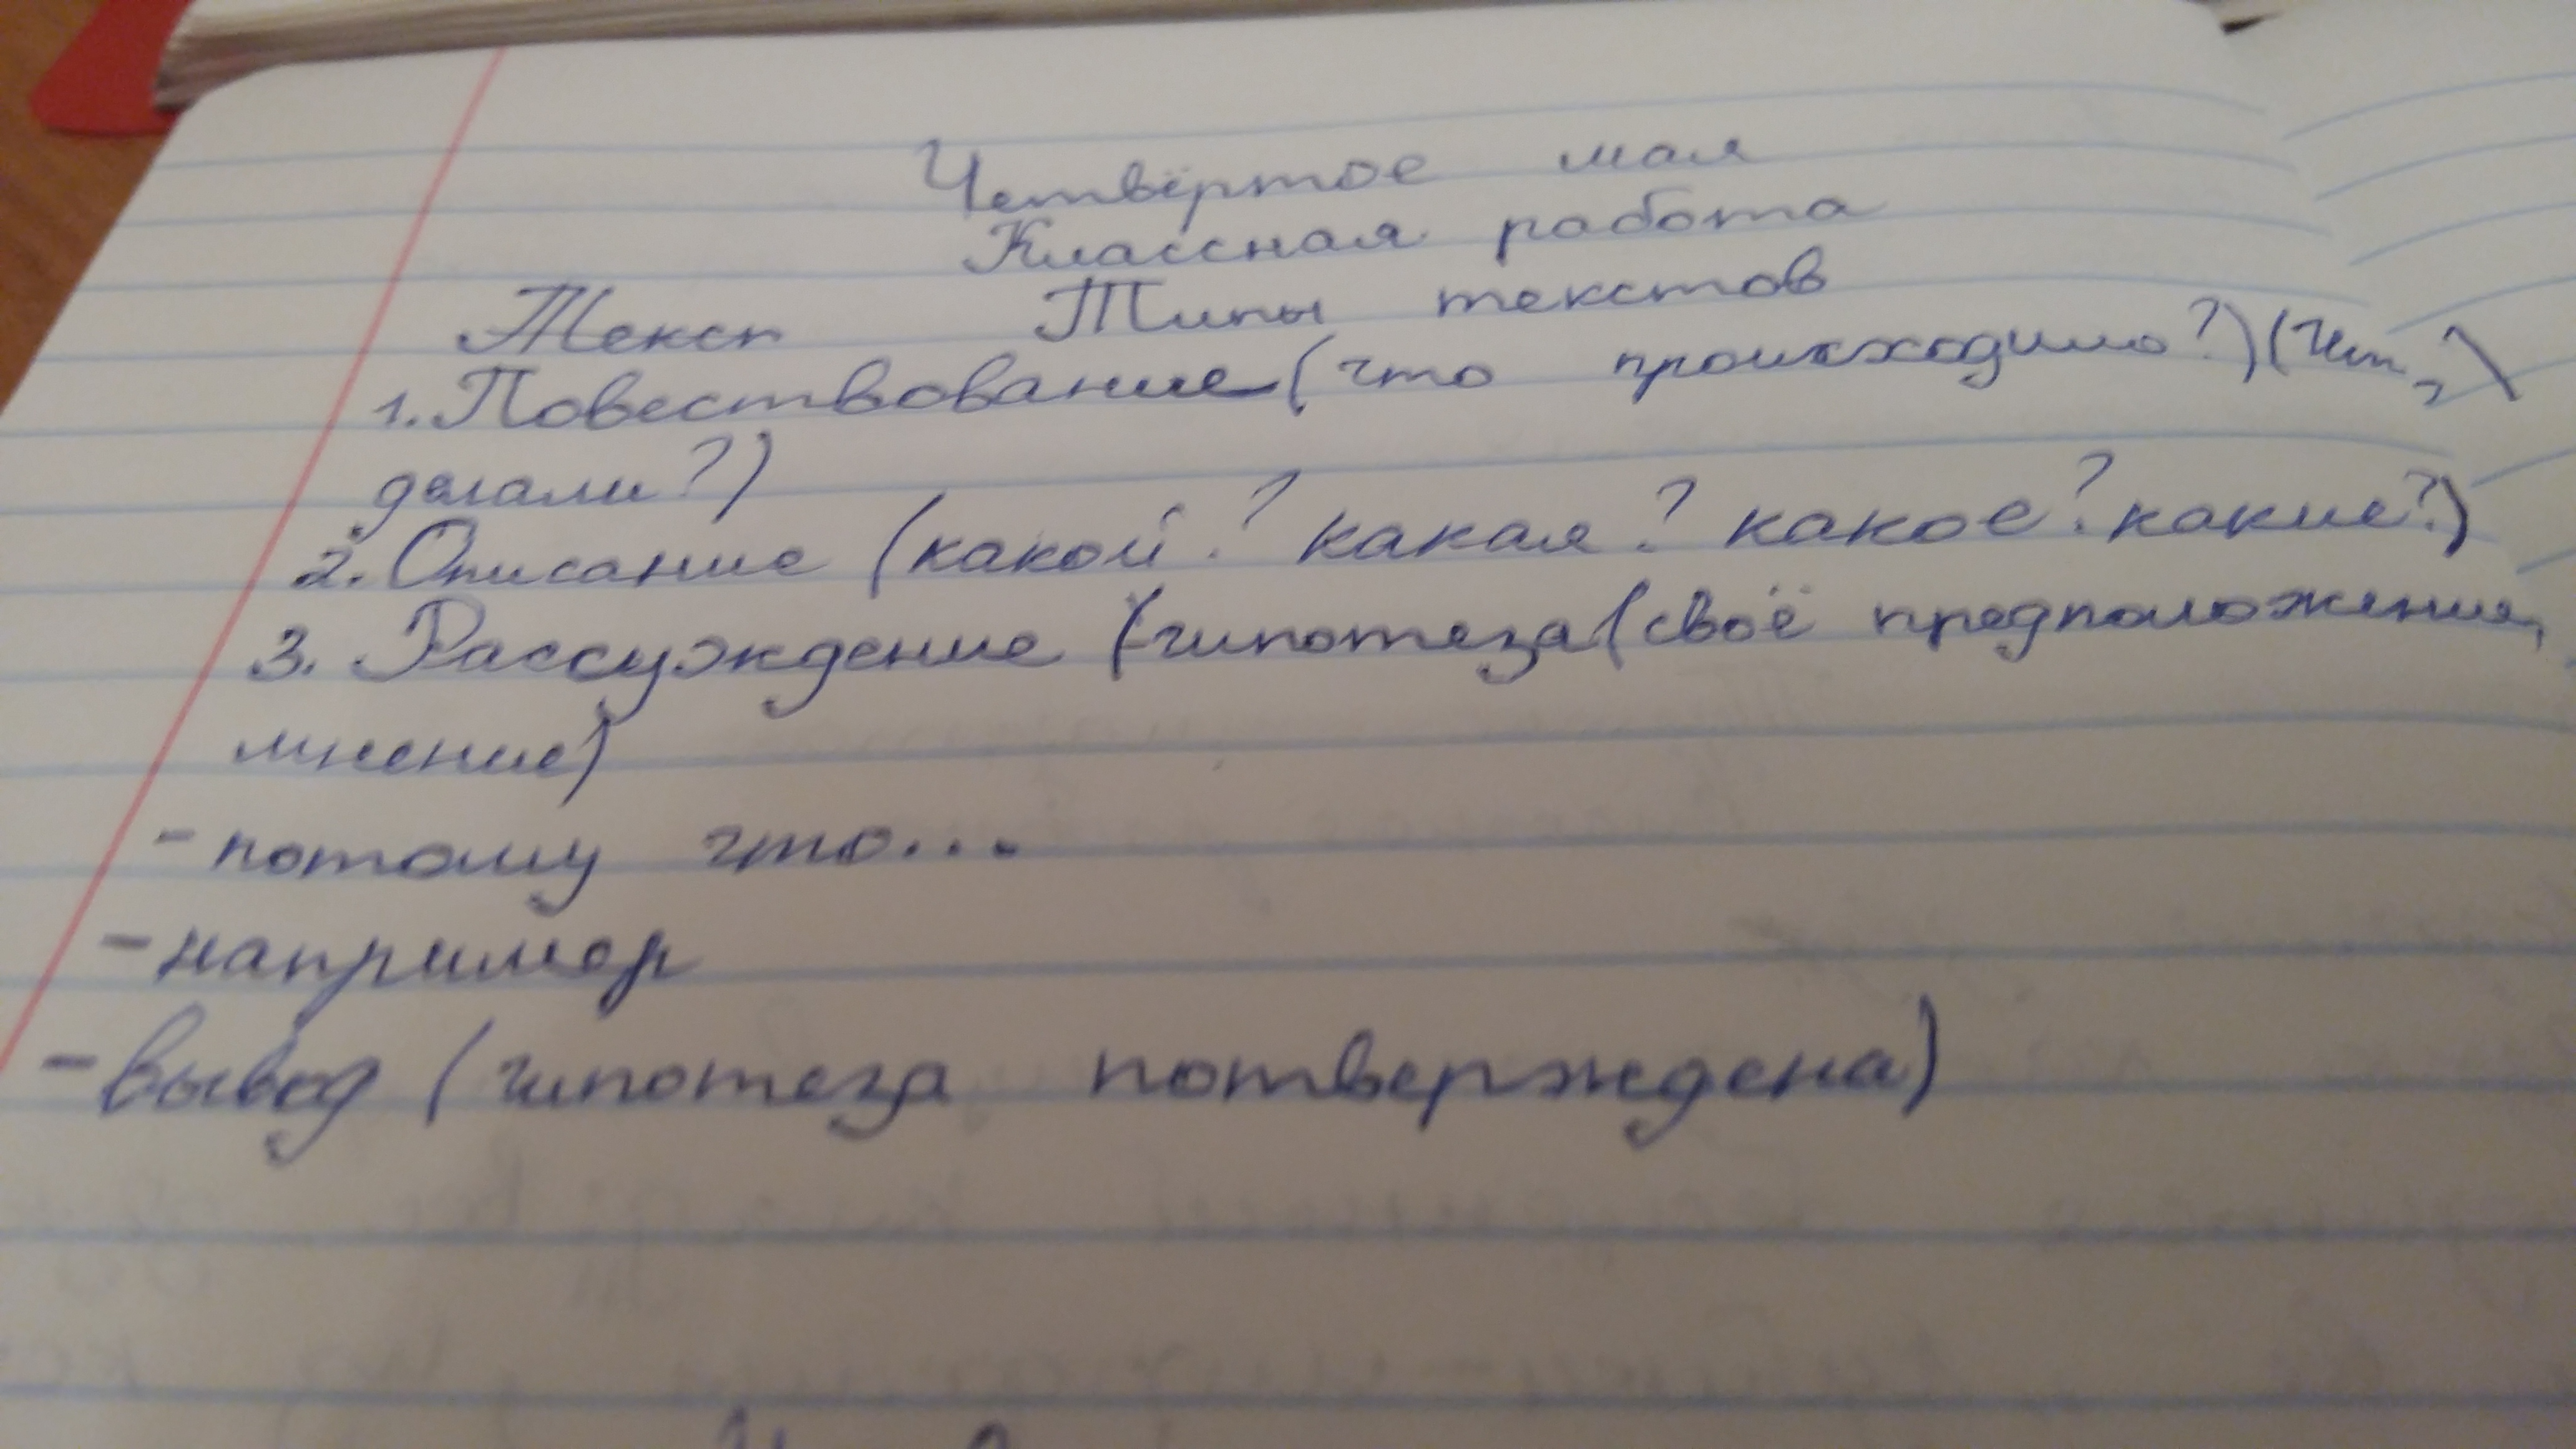 Четвёртое мая
Классная работа
Текст Типы текстов
1. Повествование (что происходило?) (
делали?)
2. Описание (какой? какая? какое? какие?)
3. Рассуждение (гипотеза (своё предположение,
мнение)
- потому что...
- например
- вывод (гипотеза потверждена)